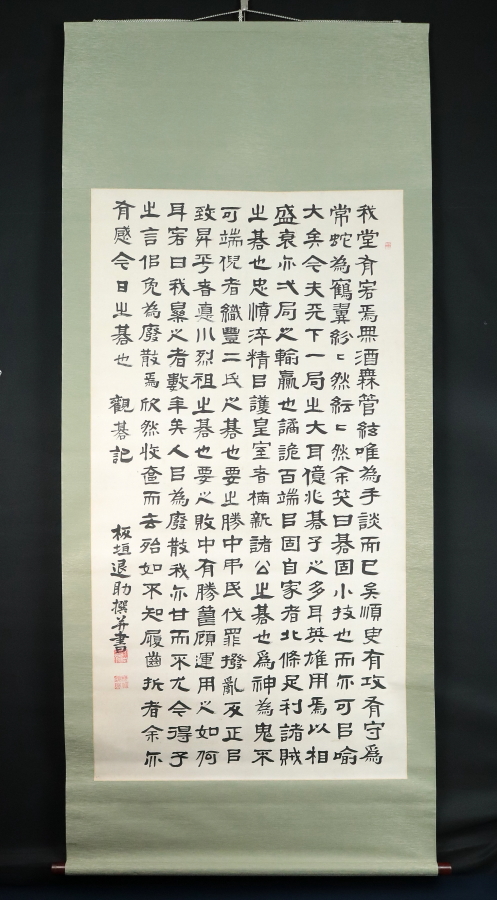 我堂有客焉無酒無管絃唯為手談而已矣須臾有攻有守為
常蛇為鶴翼紛〻然紜〻然余笑曰碁固小技也而亦可㠯喻
大矣今夫天下一局之大耳億兆碁子之多耳英雄用焉以相
盛衰亦弌局之輸贏也譎詭百端㠯固自家者北條足利諸賊
之碁也忠憤淬精㠯護皇室者楠新諸公之碁也為神為鬼不
可端倪者織豐二氏之碁也要之勝中弔民伐罪撥亂反正㠯
致昇平者悳川烈祖之碁也要之敗中有勝籌顧運用之如何
耳客曰我棄之者數年矣人㠯為廢散我亦甘而不尤今得子
之言佀免為廢散焉欣然收奩而去殆如不知履齒折者余亦
有感今日之碁也 觀碁記
板垣退助撰并書